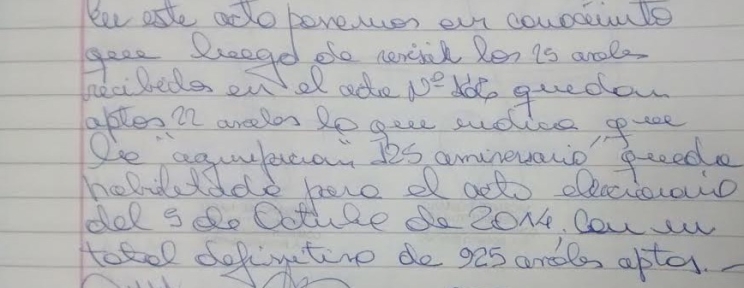 En este acto ponemos en conocimiento
que luego de revisar los 25 avales
recibidos en el acta Nº quedan
aptos 22 avales lo que indica que
la "agrupacion" 125 aniversario" queda
habilitada para el acto eleccionario
del 5 de Octubre de 2014. Con un
total definitivo de 925 avales aptos.-